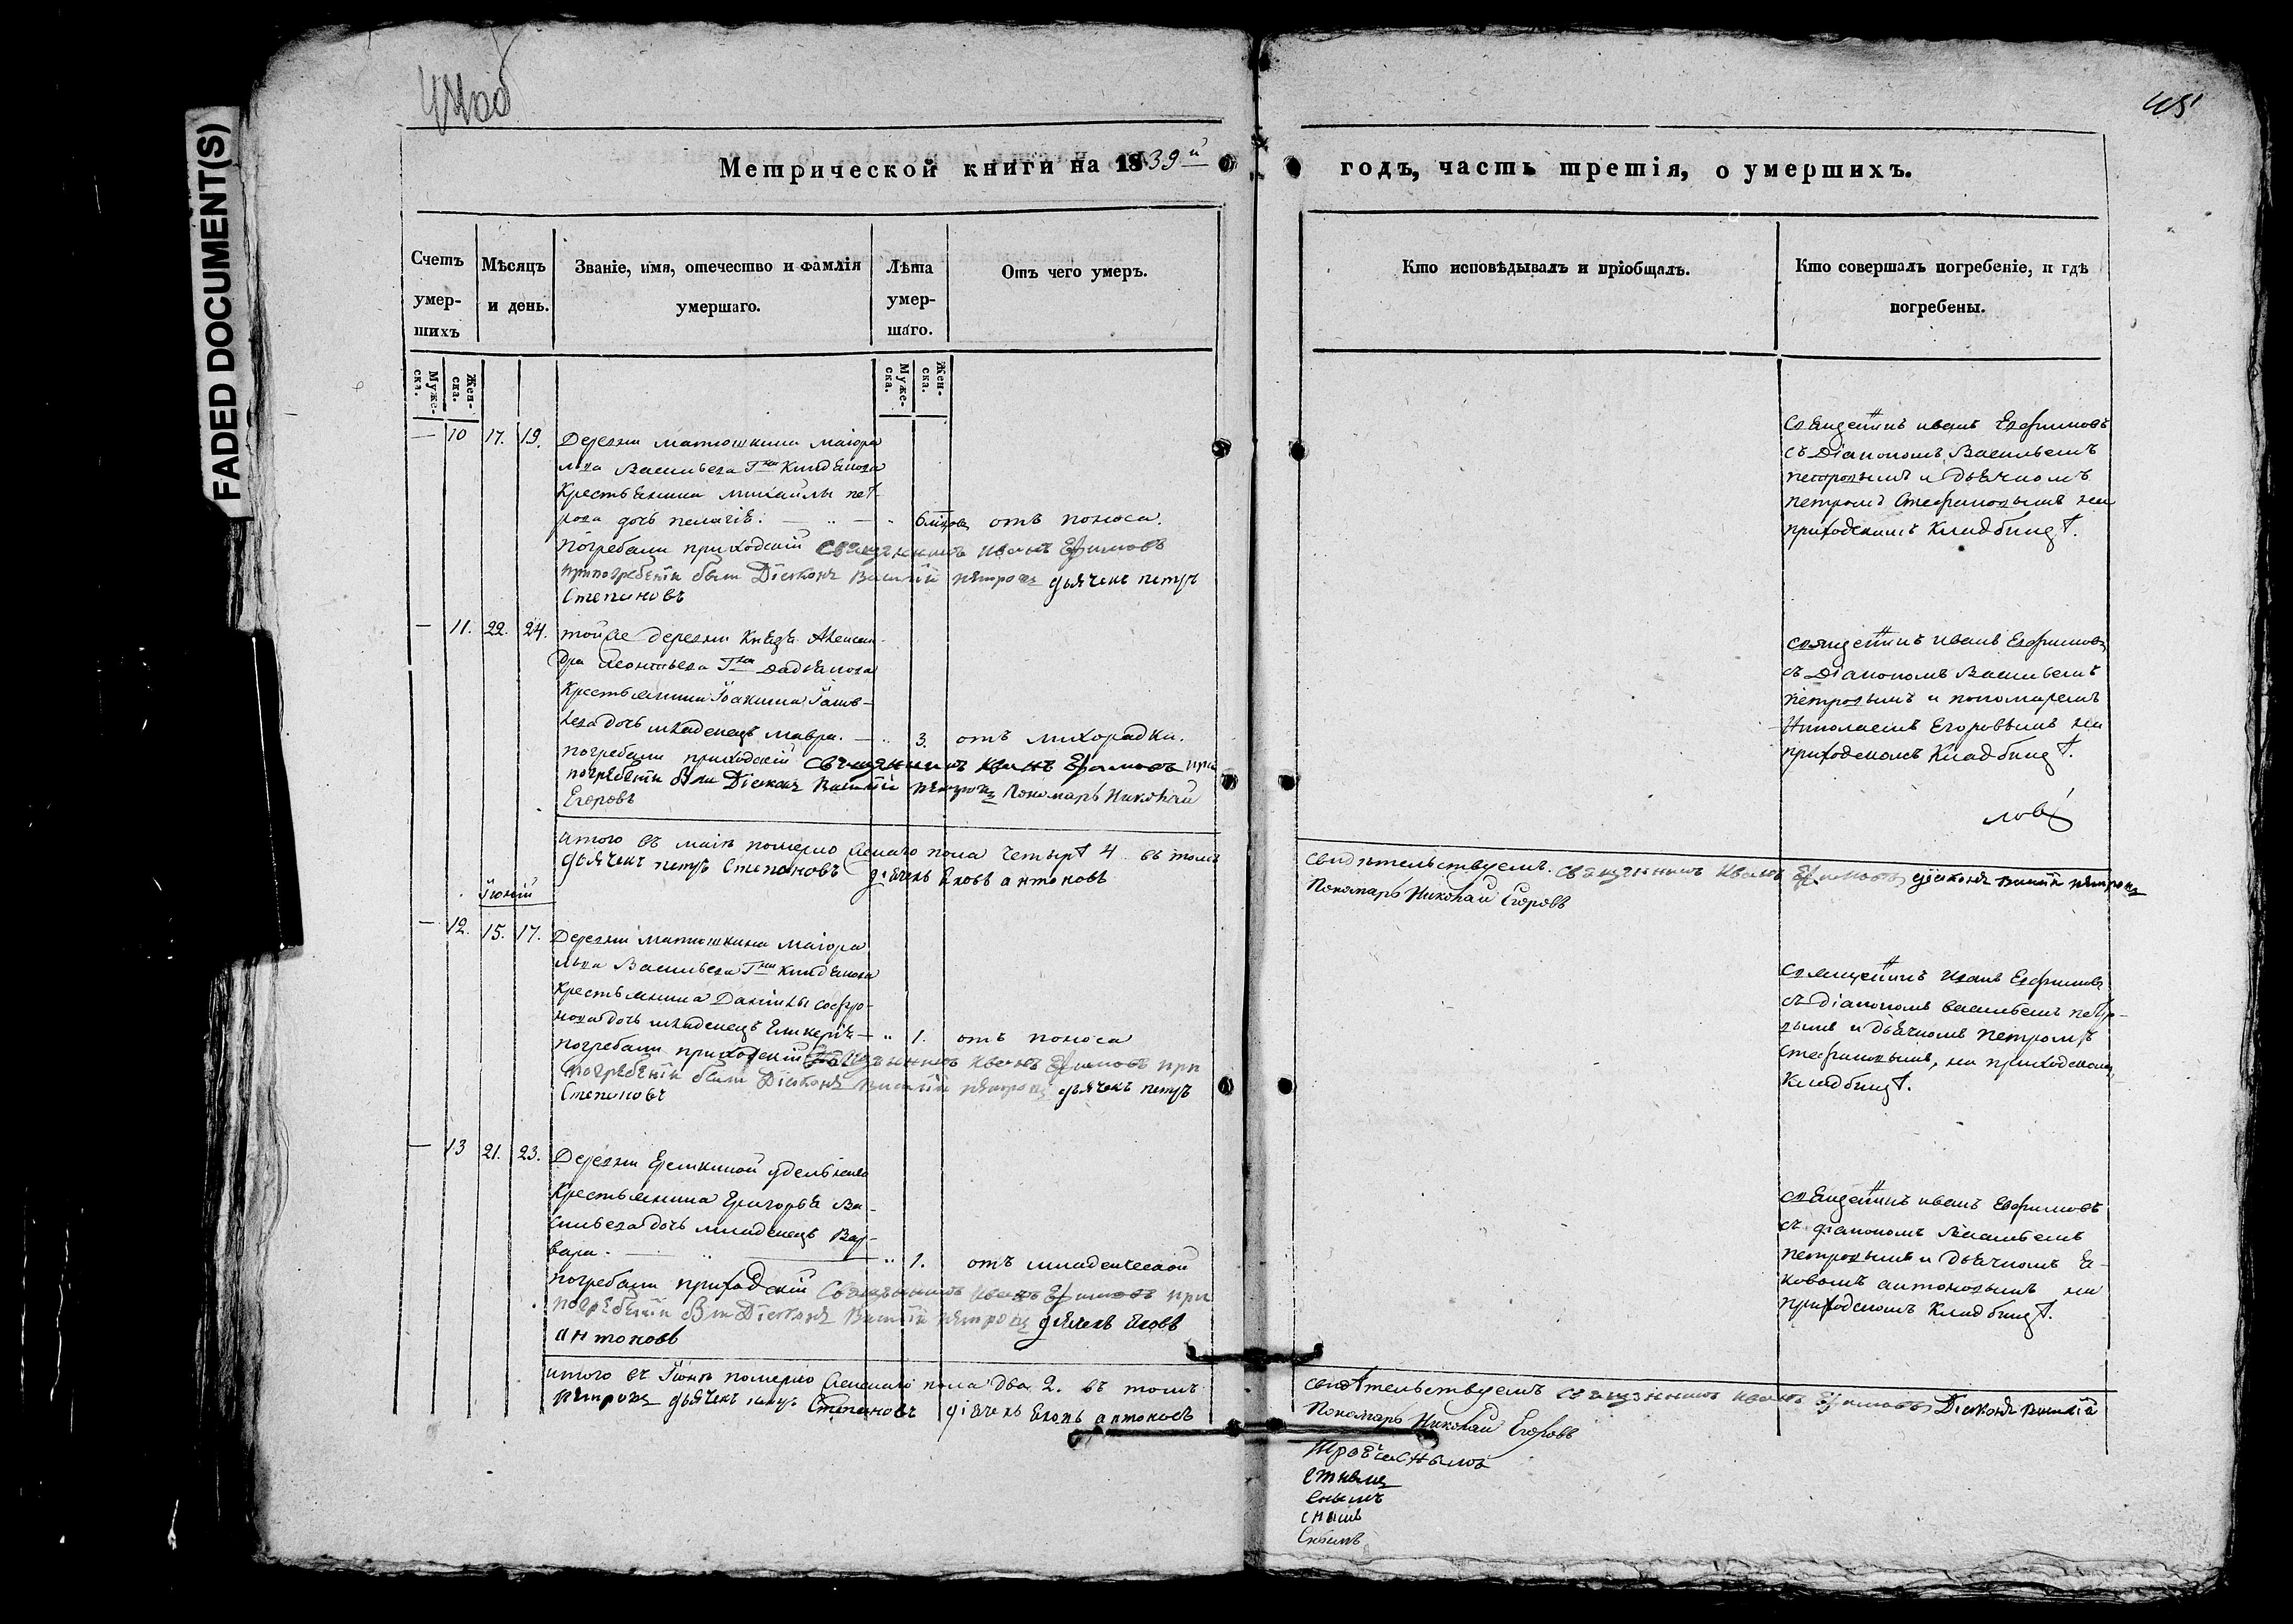 FADED DOCUMENT(S)
Метрической книги на 1839й
Счетъ умер-шихъ
Мѣсяцъ и день.
Званіе, имя, отечество и фамлія умершаго.
Лѣта умер-шаго.
Отъ чего умеръ.
Муже-ска.
Жен-ска.
Муже-ска.
Жен-ска.
— 10 17. 19. Деревни Матюшкина Маіора
Васильева Гна
Крестьянина Михайлы Пет-
рова дочь Пелагія. отъ поноса.
погребали приходскій священникъ Иванъ Ефимовъ
при погребеніи были Діаконъ Василій Петровъ дьячекъ Петръ
Степановъ
— 11. 22. 24. той же деревни Князя Алексан-
дра Леонтьева Гна Дадьянова
Крестьянина Іоакима Іаков-
лева дочь младенецъ Мавра. — 3. отъ лихорадки.
погребали приходскій священникъ Иванъ Ефимовъ при
погребеніи были Діаконъ Василій Петровъ Пономарь Николай
Егоровъ
итого въ маіѣ померло женскаго пола четыре 4 въ томъ
дьячекъ Петръ Степановъ дьячекъ Яковъ Антоновъ
Іюній
— 12. 15. 17. Деревни Матюшкина Маіора
Васильева Гна
Крестьянина Данилы Софро-
нова дочь младенецъ — 1. отъ поноса
погребали приходскій священникъ Иванъ Ефимовъ при
погребеніи были Діаконъ Василій Петровъ дьячекъ Петръ
Степановъ
— 13 21. 23. Деревни удельнаго
Крестьянина Григорья Ва-
сильева дочь младенецъ Вар-
вара. 1. отъ младенческой
погребали приходскій Священникъ Иванъ Ефимовъ при
погребеніи были Діаконъ Василій Петровъ дьячекъ Яковъ
Антоновъ
итого въ Іюнѣ померло женскаго пола два 2. въ томъ
Петровъ дьячекъ Петръ Степановъ дьячекъ Яковъ Антоновъ
годъ, часть третія, о умершихъ.
Кто исповѣдывалъ и пріобщалъ.
Кто совершалъ погребеніе, и гдѣ погребены.
Священникъ Иванъ Ефимовъ
съ Діакономъ Васильемъ
Петровымъ и дьячкомъ
Петромъ Стефановымъ на
приходскомъ кладбищѣ.
Священникъ Иванъ Ефимовъ
съ Діакономъ Васильемъ
Петровымъ и пономаремъ
Николаемъ Егоровымъ на
приходскомъ кладбищѣ.
свидѣтельствуемъ. священникъ Иванъ Ефимовъ діаконъ Василій Петровъ
Пономарь Николай Егоровъ
Священникъ Иванъ Ефимовъ
съ діакономъ Васильемъ Петро-
вымъ и дьячкомъ Петромъ
Стефановымъ, на приходскомъ
кладбищѣ.
Священникъ Иванъ Ефимовъ
съ діакономъ Васильемъ
Петровымъ и дьячкомъ Я-
ковомъ Антоновымъ на
приходскомъ кладбищѣ.
свидѣтельствуемъ священникъ Иванъ Ефимовъ Діаконъ Василій
Пономарь Николай Егоровъ